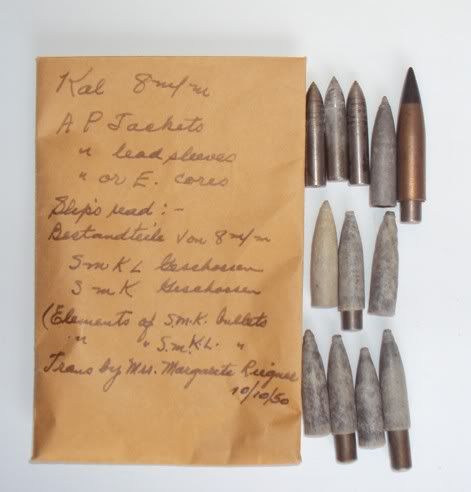 Kal 8m/m
A P Jackets
" lead sleeves
" or E. cores
Slip's read :-
Bestandteile von 8m/m
S m K L Geschossen
S m K Geschossen
(Elements of S.M.K. bullets
" " S.M.K.L. "
Trans by Mrs. Margarite
10/10/50